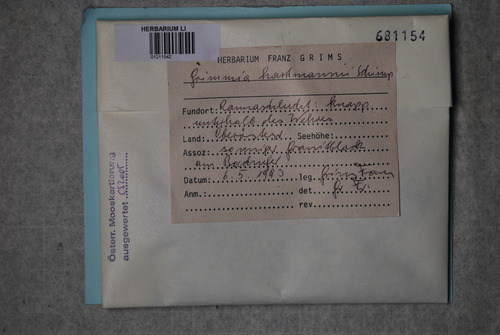 HERBARIUM LI
01211042
681154
HERBARIUM FRANZ GRIMS
Grimmia hartmannii Schimp
Fundort: Rannaschlucht: knapp
unterhalb des Wehres
Land: Oberösterr. Seehöhe:
Assoz: sonniger Granitblock
am Bachufer
Datum: 6.5.1983 leg. Grims Franz
Anm.: det.
rev.
Österr. Mooskartierung
ausgewertet